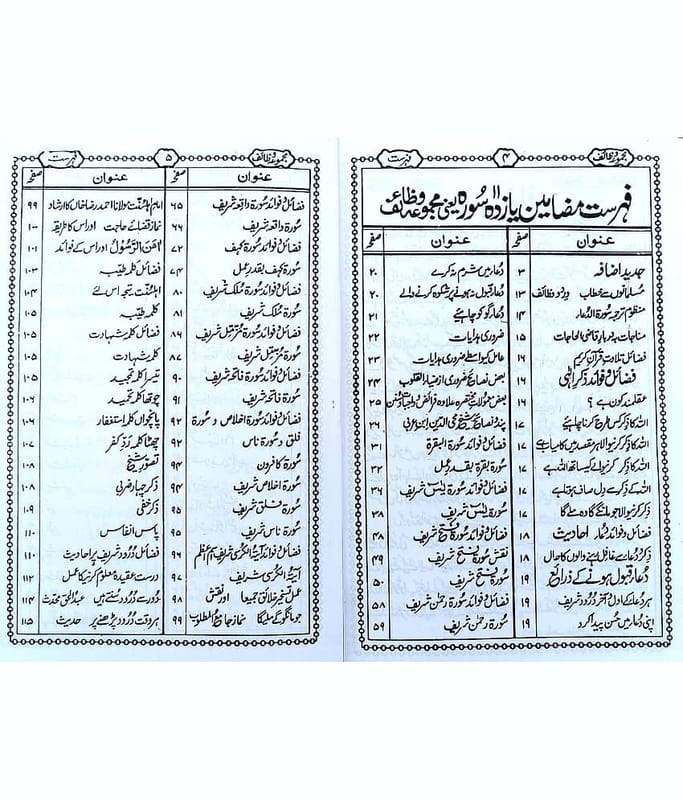 مجموعہ وظائف ۴ فہرست
فہرست مضامین یازدہ سورہ یعنی مجموعہ وظائف
عنوان صفحہ
جدید اضافہ ۳
مسلمانوں سے خطاب وِرد وظائف ۱۳
منظوم ترجمہ سورۃ الدعا ۱۴
مناجات بدربارِ قاضی الحاجات ۱۵
فضائل تلاوتِ قرآن کریم ۱۶
فضائل و فوائد ذکر الٰہی ۱۶
عقلمند کون ہے ؟ ۱۶
اللہ کا ذکر کس طرح کرنا چاہیئے ۱۷
اللہ کا ذکر کرنیوالا ہر مقصد میں کامیاب ہے ۱۷
اللہ ذکر کرنیوالے کیساتھ اللہ ہے ۱۷
اللہ کے ذکر سے دل صاف ہوتا ہے ۱۷
ذکر کرنیوالا جو مانگے گا وہ ملے گا ۱۷
فضائل و فوائد دُعا احادیث ۱۸
ذکر و دُعا سے غافل رہنے والوں کا حال ۱۸
دُعا قبول ہونے کے ذرائع ۱۹
ہر دُعا کے اول آخر درود شریف ۱۹
اپنی دُعا میں حسن پیدا کرو ۱۹
عنوان صفحہ
دُعا میں شرم نہ کرے ۲۰
دُعا قبول نہ ہونے پر شکوہ کرنے والے ۲۰
دُعا گو کو چاہیئے ۲۱
ضروری ہدایات ۲۲
عامل کیواسطے ضروری ہدایات ۲۳
بعض نصائح ضروری از ضیاء القلوب ۲۴
۲۵
پند و نصائح شیخ محی الدین ابن عربی ۲۹
فضائل و فوائد سورۃ البقرۃ ۳۱
سورۃ بقرہ بقدر عمل ۳۲
فضائل و فوائد سورۃ یٰسٓ شریف ۳۶
سورۃ یٰسٓ شریف ۳۸
فضائل و فوائد سورۃ فتح شریف ۴۸
نقش سورۃ فتح شریف ۴۹
سورۃ فتح شریف ۵۰
فضائل و فوائد سورۃ رحمٰن شریف ۵۸
سورۃ رحمٰن شریف ۵۹
مجموعہ وظائف ۵ فہرست
عنوان صفحہ
فضائل و فوائد سورۃ واقعہ شریف ۶۵
سورۃ واقعہ شریف ۶۶
فضائل و فوائد سورۃ کہف ۷۲
سورۃ کہف بقدر عمل ۷۴
فضائل و فوائد سورۃ ملک شریف ۸۰
سورۃ ملک شریف ۸۱
فضائل و فوائد سورۃ مزمل شریف ۸۶
سورۃ مزمل شریف ۸۷
فضائل و فوائد سورۃ فاتحہ شریف ۹۰
سورۃ فاتحہ شریف ۹۱
فضائل و فوائد سورۃ اخلاص و سورۃ ۹۲
فلق و سورۃ ناس ۹۲
سورۃ کافرون ۹۴
سورۃ اخلاص شریف ۹۴
سورۃ فلق شریف ۹۵
سورۃ ناس شریف ۹۵
فضائل و فوائد آیۃ الکرسی شریف اسمِ اعظم ۹۶
آیۃ الکرسی شریف ۹۷
عمل تسخیر خلائق جمیعا اور نقش ۹۸
جو مانگو گے ملیگا نماز جامع المطلوب ۹۹
عنوان صفحہ
امام اہلسنت مولانا احمد رضا خاں کا ارشاد ۹۹
نماز قضائے حاجت اور اس کا طریقہ ۱۰۰
اٰمن الرسول اور اس کے فوائد ۱۰۱
فضائل کلمہ طیبہ ۱۰۳
۱۰۴
کلمہ طیبہ ۱۰۵
فضائل کلمہ شہادت ۱۰۵
کلمہ شہادت ۱۰۵
تیسرا کلمہ تمجید ۱۰۵
چوتھا کلمہ توحید ۱۰۶
پانچواں کلمہ استغفار ۱۰۶
چھٹا کلمہ رد کفر ۱۰۷
تصور شیخ ۱۰۸
ذکر چہار ضربی ۱۰۸
ذکر خفی ۱۰۹
پاس انفاس ۱۱۰
فضائل درود شریف پر احادیث ۱۱۰
درست عقیدہ معلوم کرنیکا عمل ۱۱۲
دُور سے درود سنتے ہیں عبدالحق محدث ۱۱۴
ہر وقت درود پڑھنے پر حدیث ۱۱۵